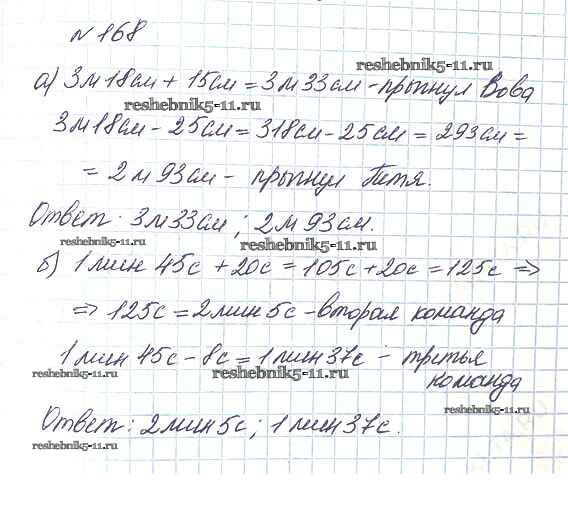 №168
reshebnik5-11.ru
а) 3м 18см + 15см = 3м 33см - прыгнул Вова
reshebnik5-11.ru
3м 18см - 25см = 318см - 25см = 293см =
= 2м 93см - прыгнул Петя.
Ответ: 3м 33см; 2м 93см.
reshebnik5-11.ru reshebnik5-11.ru
б) 1мин 45с + 20с = 105с + 20с = 125с ⇒
⇒ 125с = 2мин 5с - вторая команда
1мин 45с - 8с = 1мин 37с - третья
reshebnik5-11.ru reshebnik5-11.ru
команда
reshebnik5-11.ru
Ответ: 2мин 5с; 1мин 37с.
reshebnik5-11.ru